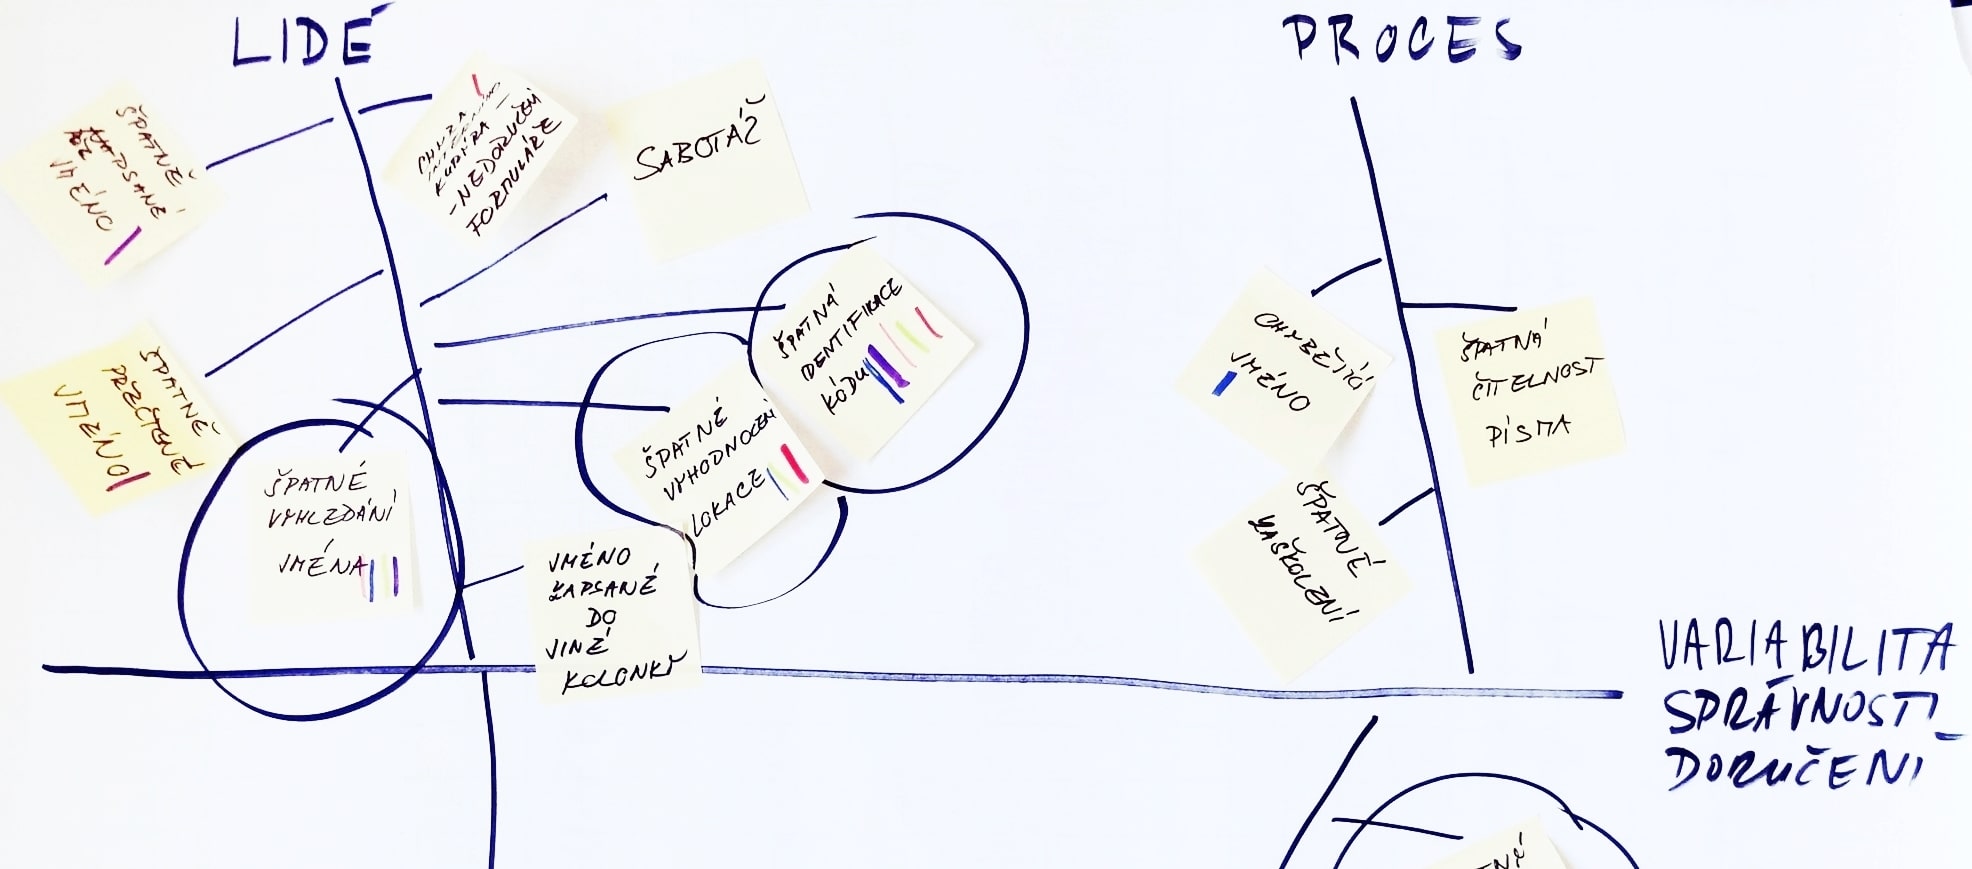 LIDÉ
PROCES
ŠPATNĚ
ZAPSANÉ
JMÉNO
CHYBA
KURÝRA
-NEDORUČENÍ
FORMULÁŘE
SABOTÁŽ
ŠPATNĚ
PŘEČTENÉ
JMÉNO
ŠPATNÁ
IDENTIFIKACE
KÓDU
ŠPATNÉ
VYHODNOCENÍ
LOKACE
ŠPATNÉ
VYHLEDÁNÍ
JMÉNA
JMÉNO
ZAPSANÉ
DO
JINÉ
KOLONKY
CHYBĚJÍCÍ
JMÉNO
ŠPATNÁ
ČITELNOST
PÍSMA
ŠPATNÉ
ZAŠKOLENÍ
VARIABILITA
SPRÁVNOSTI
DORUČENÍ